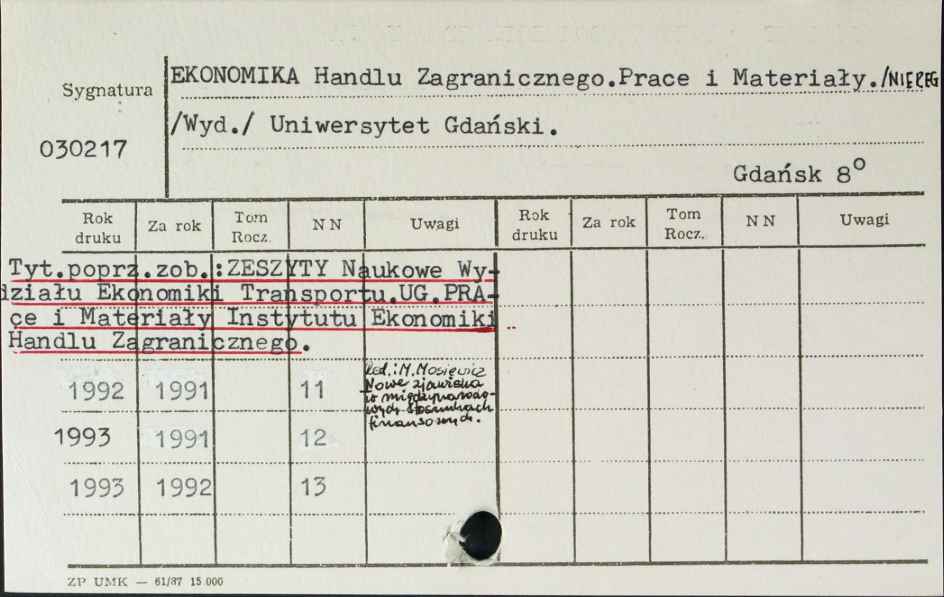 EKONOMIKA Handlu Zagranicznego.Prace i Materiały./NIEREG
Sygnatura
/Wyd./ Uniwersytet Gdański.
030217
Gdańsk 8°
Rok druku Za rok Tom Rocz. N N Uwagi Rok druku Za rok Tom Rocz. N N Uwagi
Tyt.poprz.zob.:ZESZYTY Naukowe Wy-
działu Ekonomiki Transportu.UG.PRA-
ce i Materiały Instytutu Ekonomiki
Handlu Zagranicznego.
1992 1991 11
Red.: M. Mosiewicz
Nowe zjawiska
w międzynarodo-
wych stosunkach
finansowych.
1993 1991 12
1993 1992 13
ZP UMK — 61/87 15.000